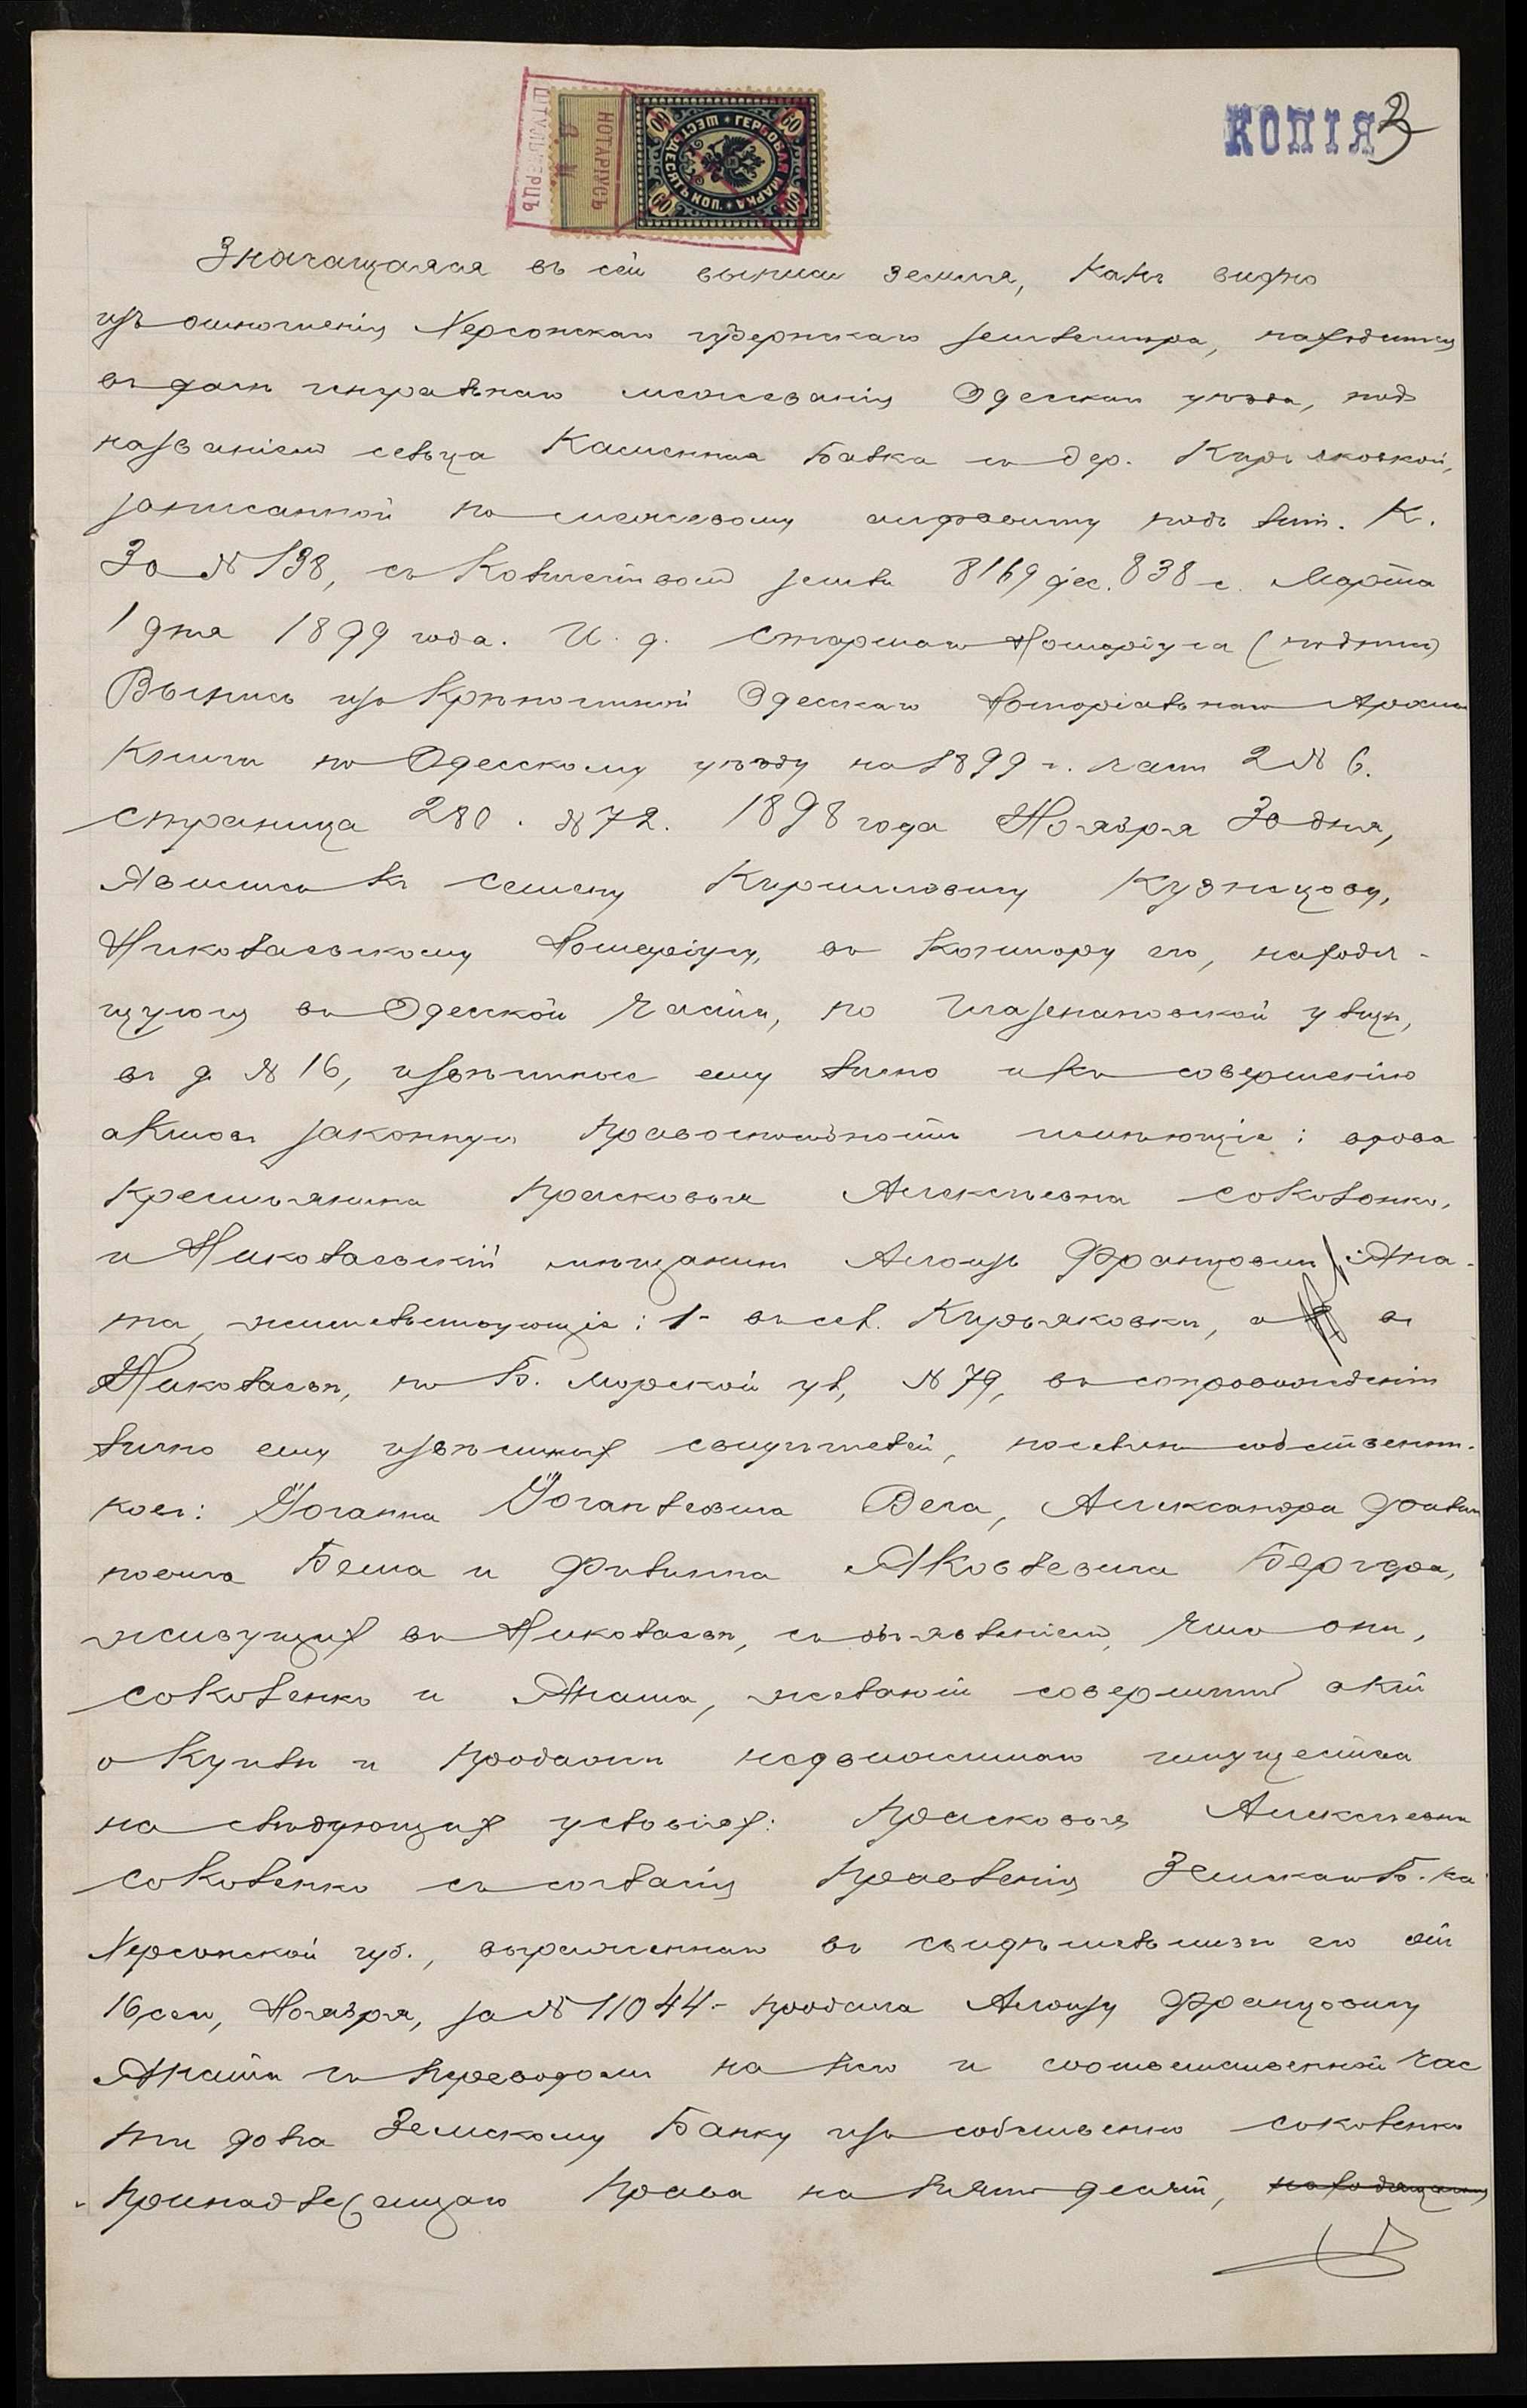 КОПІЯ
3
ГЕРБОВАЯ МАРКА
ШЕСТЬДЕСЯТЪ КОП.
60 60 60 60
НОТАРІУСЪ
Значащаяся въ сей выписи земля, какъ видно
изъ отношенія Херсонскаго губернскаго землемѣра, находится
въ дачѣ генеральнаго межеванія Одесскаго уѣзда, подъ
названіемъ сельца Каменная Балка съ дер. Кирьяковкой,
записанной по межевому алфавиту подъ лит. К.
За № 138, съ количествомъ земли 8169 дес. 838 с. Марта
1 дня 1899 года. И. д. Старшаго Нотаріуса (подпись)
Выпись изъ крѣпостной Одесскаго Нотаріальнаго Архива
Книги по Одесскому уѣзду на 1899 г. часть 2 № 6.
страница 280. № 72. 1898 года Ноября 30 дня,
явились къ Семену Кирилловичу Кузнецову,
Николаевскому Нотаріусу, въ контору его, находя-
щуюся въ Одесской части, по Глазенаповской улицѣ,
въ д. № 16, извѣстные ему лично и къ совершенію
актовъ законную правоспособность имѣющіе: вдова
крестьянина Прасковья Алексѣевна Соколенко,
и Николаевскій мѣщанинъ Алоизъ Францовичъ Яна-
та, жительствующіе: 1- въ сел. Кирьяковкѣ, а въ
Николаевѣ, по Б. Морской ул, № 79, въ сопровожденіи
лично ему извѣстныхъ свидѣтелей, поселянъ собственни-
ковъ: Іоганна Іоганлевича Вега, Александра Фили
повича Бема и Филиппа Яковлевича Бергера,
живущихъ въ Николаевѣ, съ объявленіемъ, что они,
Соколенко и Яната, желаютъ совершить актъ
о куплѣ и продажѣ недвижимаго имущества
на слѣдующихъ условіяхъ: Прасковья Алексѣевна
Соколенко съ согласія Правленія Земскаго Б-ка
Херсонской губ., выраженнаго въ свидѣтельствѣ его отъ
16 сего, Ноября, за № 11044 - продала Алоизу Францовичу
Янатѣ съ переводомъ на него и соотвѣтственной час
ти долга Земскому Банку изъ собственно Соколенко
принадлежащаго права на пять десят,